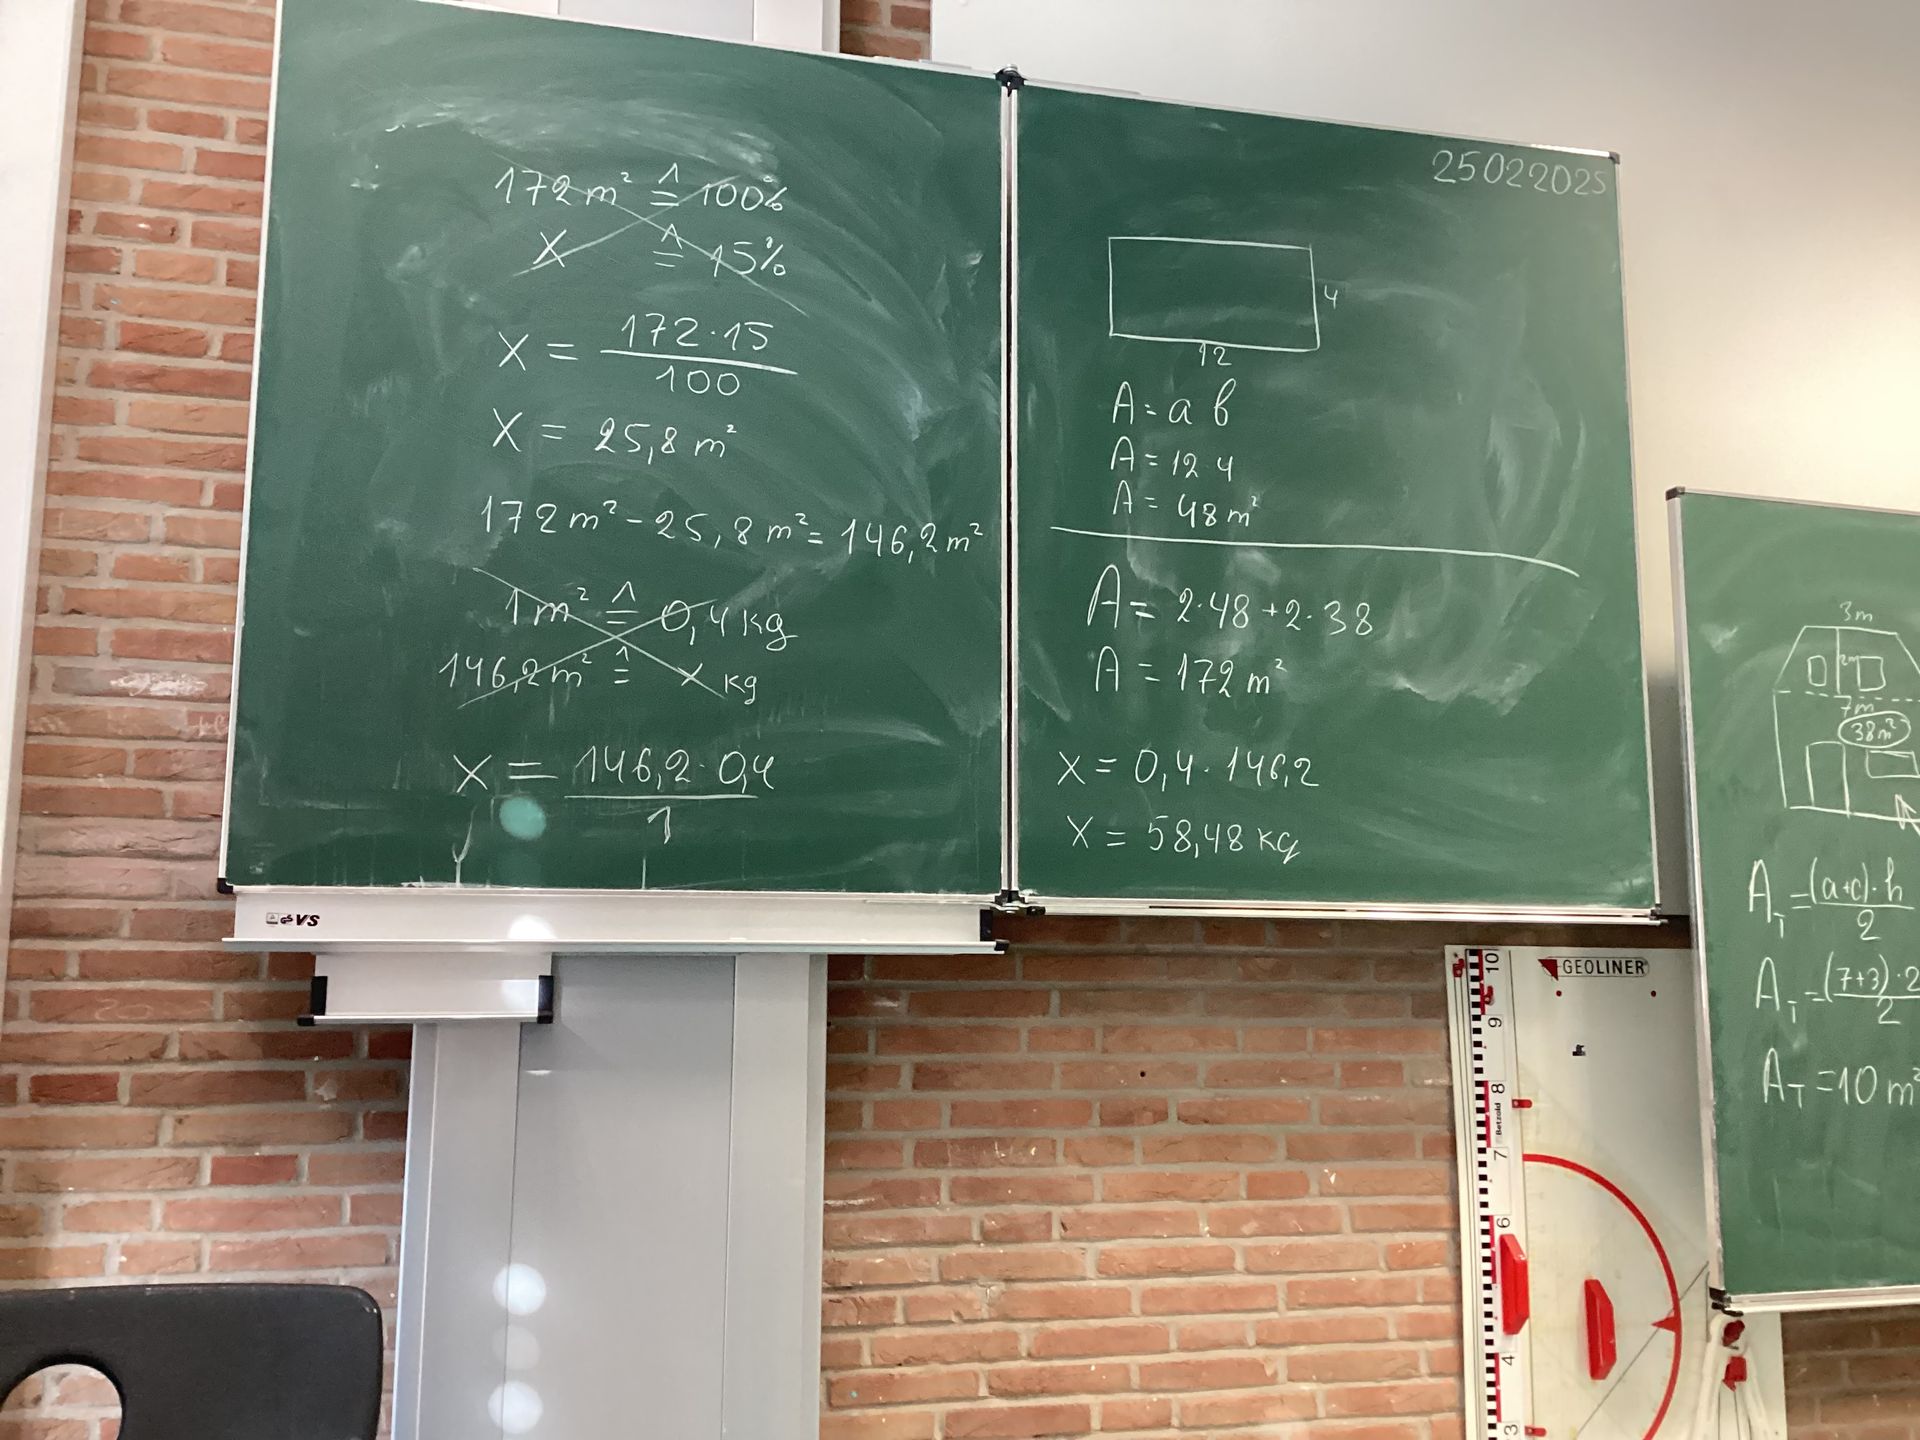 172 m² ≙ 100%
x ≙ 15%
x = 172 · 15 / 100
x = 25,8 m²
172 m² - 25,8 m² = 146,2 m²
1 m² ≙ 0,4 kg
146,2 m² ≙ x kg
x = 146,2 · 0,4 / 1
VS
25022025
4
12
A = a b
A = 12 4
A = 48 m²
A = 2·48 + 2·38
A = 172 m²
x = 0,4 · 146,2
x = 58,48 kg
3m
2m
7m
38m²
A_T = (a+c)·h / 2
A_T = (7+3)·2 / 2
A_T = 10 m²
GEOLINER
10
9
8
Betzold
7
6
4
3